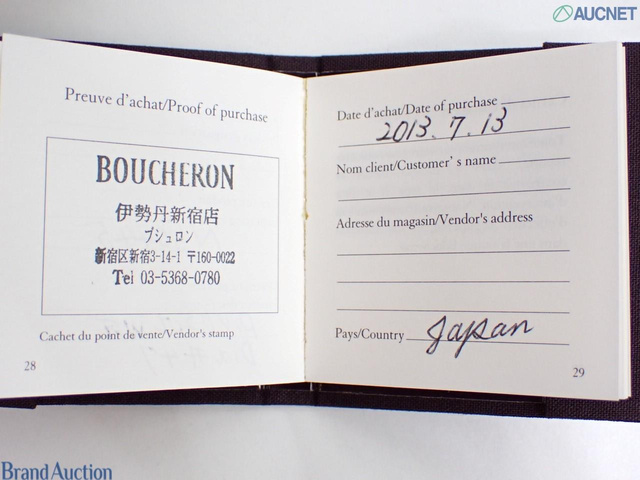 AUCNET
Preuve d'achat/Proof of purchase
BOUCHERON
伊勢丹新宿店
ブシュロン
新宿区新宿3-14-1 〒160-0022
Tel 03-5368-0780
Cachet du point de vente/Vendor's stamp
28
Date d'achat/Date of purchase
2013. 7. 13
Nom client/Customer's name
Adresse du magasin/Vendor's address
Pays/Country Japan
29
Brand Auction